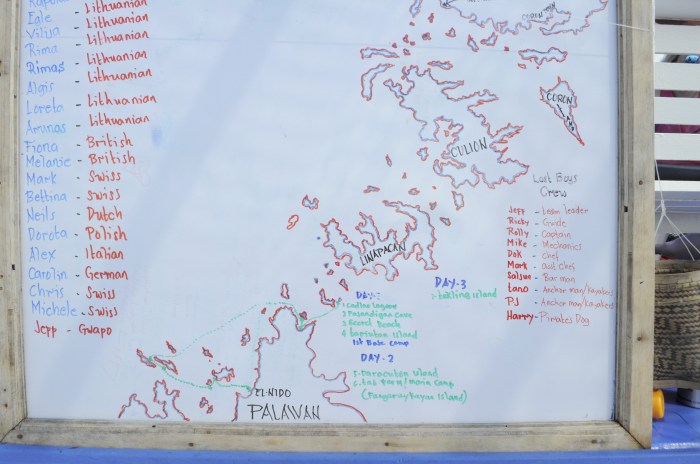 Lithuanian
Egle - Lithuanian
Vilija - Lithuanian
Rima - Lithuanian
Rimas - Lithuanian
Algis
Loreta - Lithuanian
Arunas - Lithuanian
Fiona - British
Melanie - British
Mark - Swiss
Bettina - Swiss
Neils - Dutch
Dorota - Polish
Alex - Italian
Carolin - German
Chris - Swiss
Michele - Swiss
Jepp - Gwapo
CORON
CORON
CULION
LINAPACAN
EL-NIDO
PALAWAN
DAY-1
1 Cadlao Lagoon
2
3 Secret Beach
4 Island
1st Base Camp
DAY-2
5- Daracuton Island
6- / main Camp
( Island)
DAY-3
Island
Lost Boys
Crew
Jepp - Team leader
Ricky - Guide
Rolly - Captain
Mike - Mechanics
Dok - Chef
Mark - Asst Chef
Salsue - Bar man
Tano - Anchor man/kayakers
PJ - Anchor man/kayakers
Harry - Pirates Dog